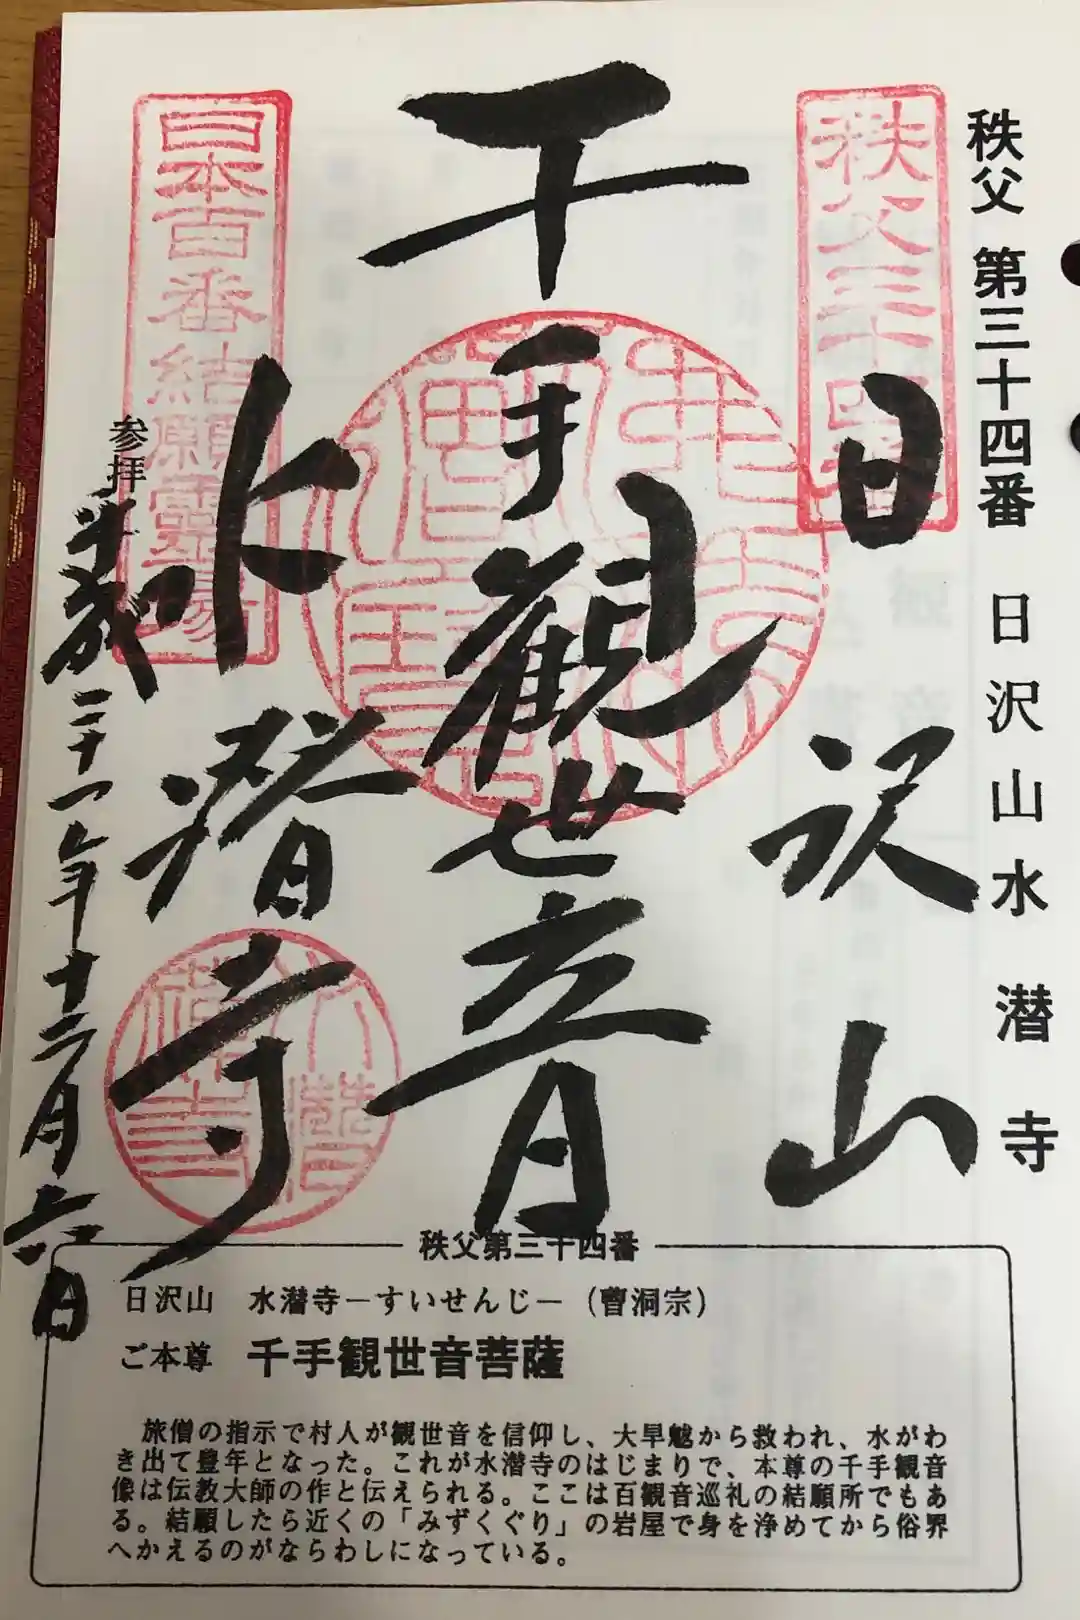 秩父 第三十四番 日沢山水潜寺
秩父三十四番
日沢山
千手観世音
水潜寺
日本百番結願霊場
参拝
平成三十一年十二月六日
秩父第三十四番
日沢山 水潜寺－すいせんじ－（曹洞宗）
ご本尊 千手観世音菩薩
旅僧の指示で村人が観世音を信仰し、大旱魃から救われ、水がわ
き出て豊年となった。これが水潜寺のはじまりで、本尊の千手観音
像は伝教大師の作と伝えられる。ここは百観音巡礼の結願所でもあ
る。結願したら近くの「みずくぐり」の岩屋で身を浄めてから俗界
へかえるのがならわしになっている。